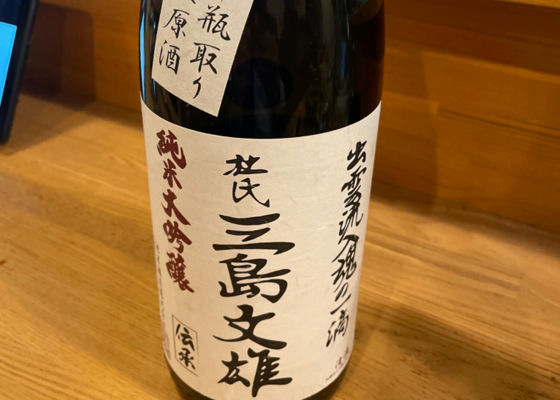 瓶取り
原酒
出雲流入魂の一滴
杜氏
三島文雄
純米大吟醸
伝承